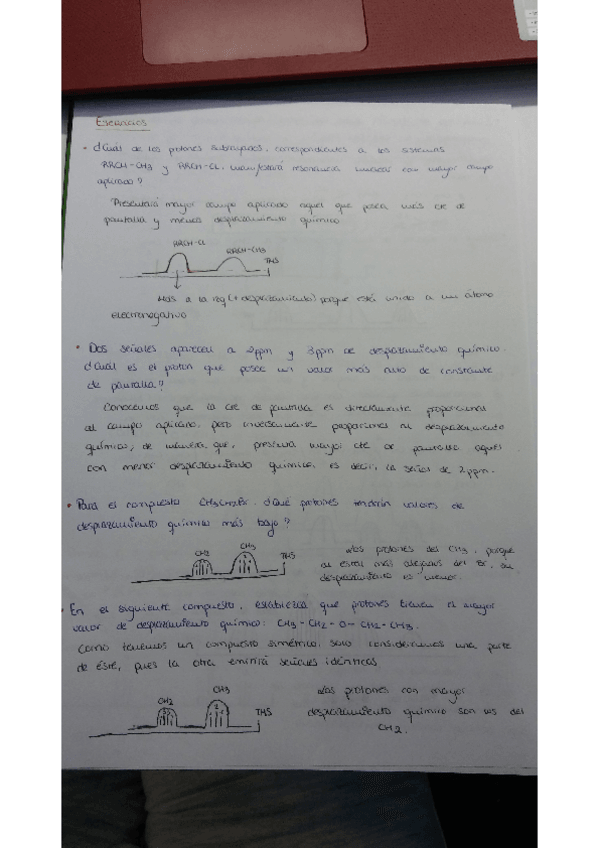 Ejercicios
• ¿Cuál de los protones subrayados, correspondientes a los sistemas
RRCH-CH3 y RRCH-CL, manifestará resonancia nuclear con mayor campo
aplicado?
Presentará mayor campo aplicado aquel que posea más cte de
pantalla y menos desplazamiento químico
RRCH-CL
RRCH-CH3
TMS
Más a la izq (+ desplazamiento) porque está unido a un átomo
electronegativo
• Dos señales aparecen a 2ppm y 3ppm de desplazamiento químico.
¿Cuál es el protón que posee un valor más alto de constante
de pantalla?
Conocemos que la cte de pantalla es directamente proporcional
al campo aplicado, pero inversamente proporcional al desplazamiento
químico, de manera que, presenta mayor cte de pantalla aquel
con menor desplazamiento químico, es decir, la señal de 2ppm.
• Para el compuesto CH3CH2Br. ¿Qué protones tendrán valores de
desplazamiento químico más bajo?
CH2
CH3
TMS
Los protones del CH3, porque
al estar más alejados del Br, su
desplazamiento es menor.
• En el siguiente compuesto, establezca que protones tienen el mayor
valor de desplazamiento químico: CH3-CH2-O-CH2-CH3.
Como tenemos un compuesto simétrico, solo consideramos una parte
de éste, pues la otra emitirá señales idénticas.
CH2
CH3
TMS
Los protones con mayor
desplazamiento químico son los del
CH2.